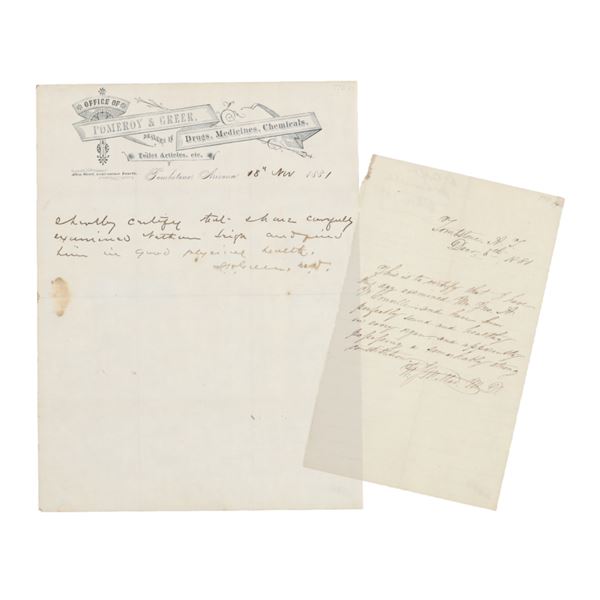 OFFICE OF
POMEROY & GREER,
DEALERS IN
Drugs, Medicines, Chemicals,
Toilet Articles, etc.
Tombstone, Arizona 18" Nov 1881
I hereby certify that I have carefully
examined Nathan Leigh and find
him in good physical health.
M.D.
Tombstone A. T.
Dec. 5th 1881
This is to certify that I have
this day examined Mr. Geo. H.
and have him
perfectly sound and healthy
in every organ and apparently
possessing a remarkably strong
constitution
M. D.